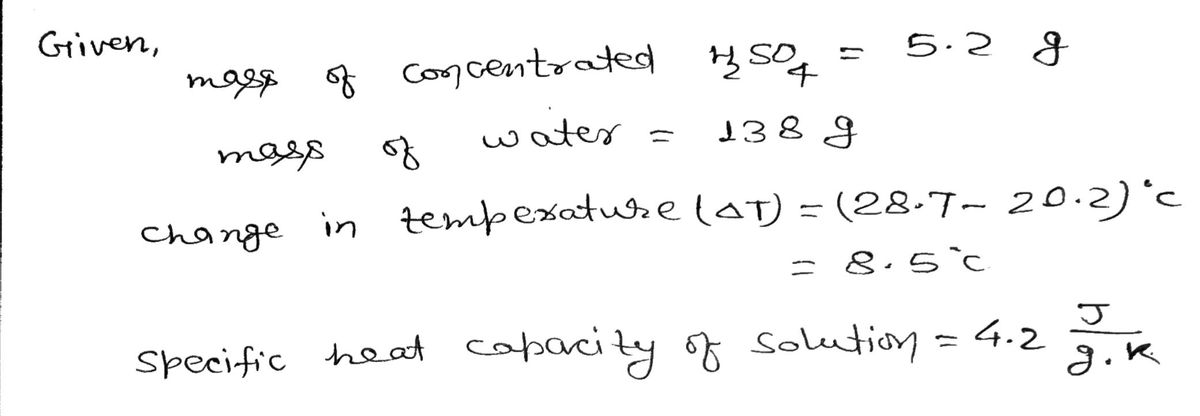 Given,
mass of concentrated H₂SO₄ = 5.2 g
mass of water = 138 g
change in temperature (ΔT) = (28.7 - 20.2)°C
= 8.5°C
Specific heat capacity of solution = 4.2 J/g.K